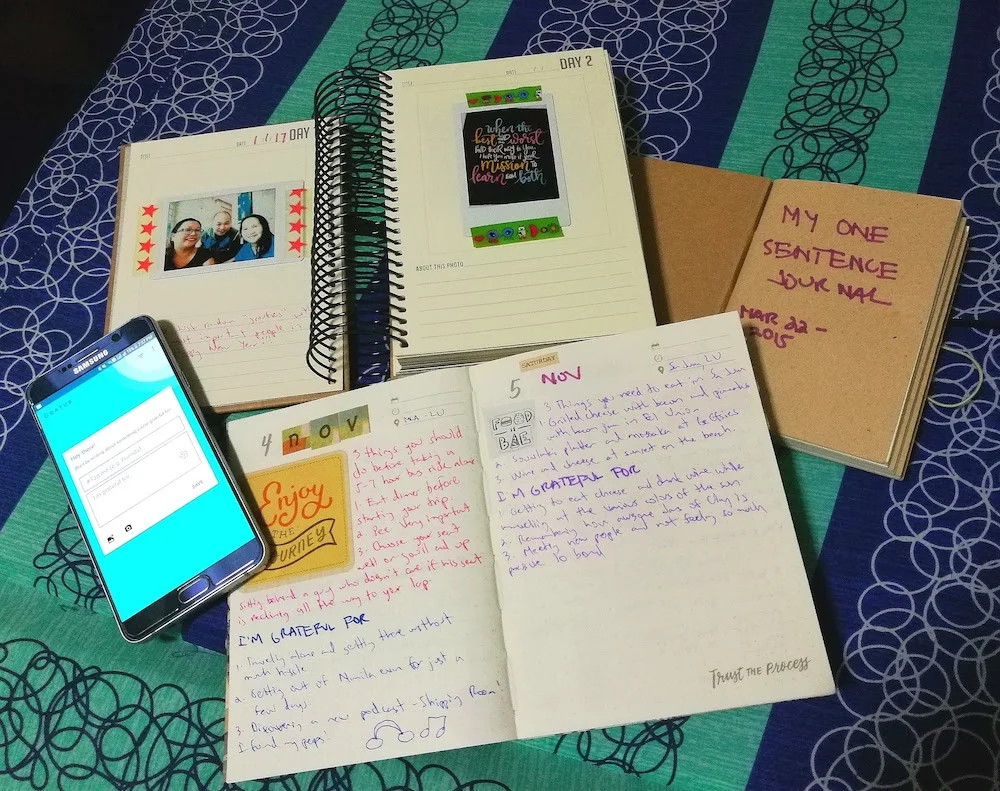 TITLE
DATE 1/1/17 DAY
TITLE
DATE / /
DAY 2
when the
best and worst
find their way to you,
mission to
learn from both
ABOUT THIS PHOTO
MY ONE
SENTENCE
JOURNAL
MAR 22 -
2015
SAMSUNG
GRATUS
Hey there!
I'm grateful for
SAVE
4 nov
MLA - LU
Enjoy
THE
JOURNEY
3 things you should
do before taking a
5-7 hour bus ride alone
1. Eat dinner before
starting your trip.
2. Pee. Very important
3. Choose your seat
well or you'll end up
sitting behind a guy who doesn't care if his seat
is reclining all the way to your lap.
I'M GRATEFUL FOR
1. Traveling alone and getting there without
much hassle
2. Getting out of Manila even for just a
few days
3. Discovering a new podcast - Shipping Room!
I found my peeps!
SATURDAY
5 NOV
San Juan, LU
FOOD
IS
BAE
3 Things you need to eat in San Juan
1. Grilled cheese with bacon and pancakes
with bacon jam in El Union
2. Souvlaki platter and moussaka at Gefseis
3. Wine and cheese at sunset on the beach.
I'M GRATEFUL FOR
1. Getting to eat cheese and drink wine while
marvelling at the various colors of the sun
2. Remembering how awesome Jars of Clay is
3. Meeting new people and not feeling so much
pressure to bond
TRUST THE PROCESS